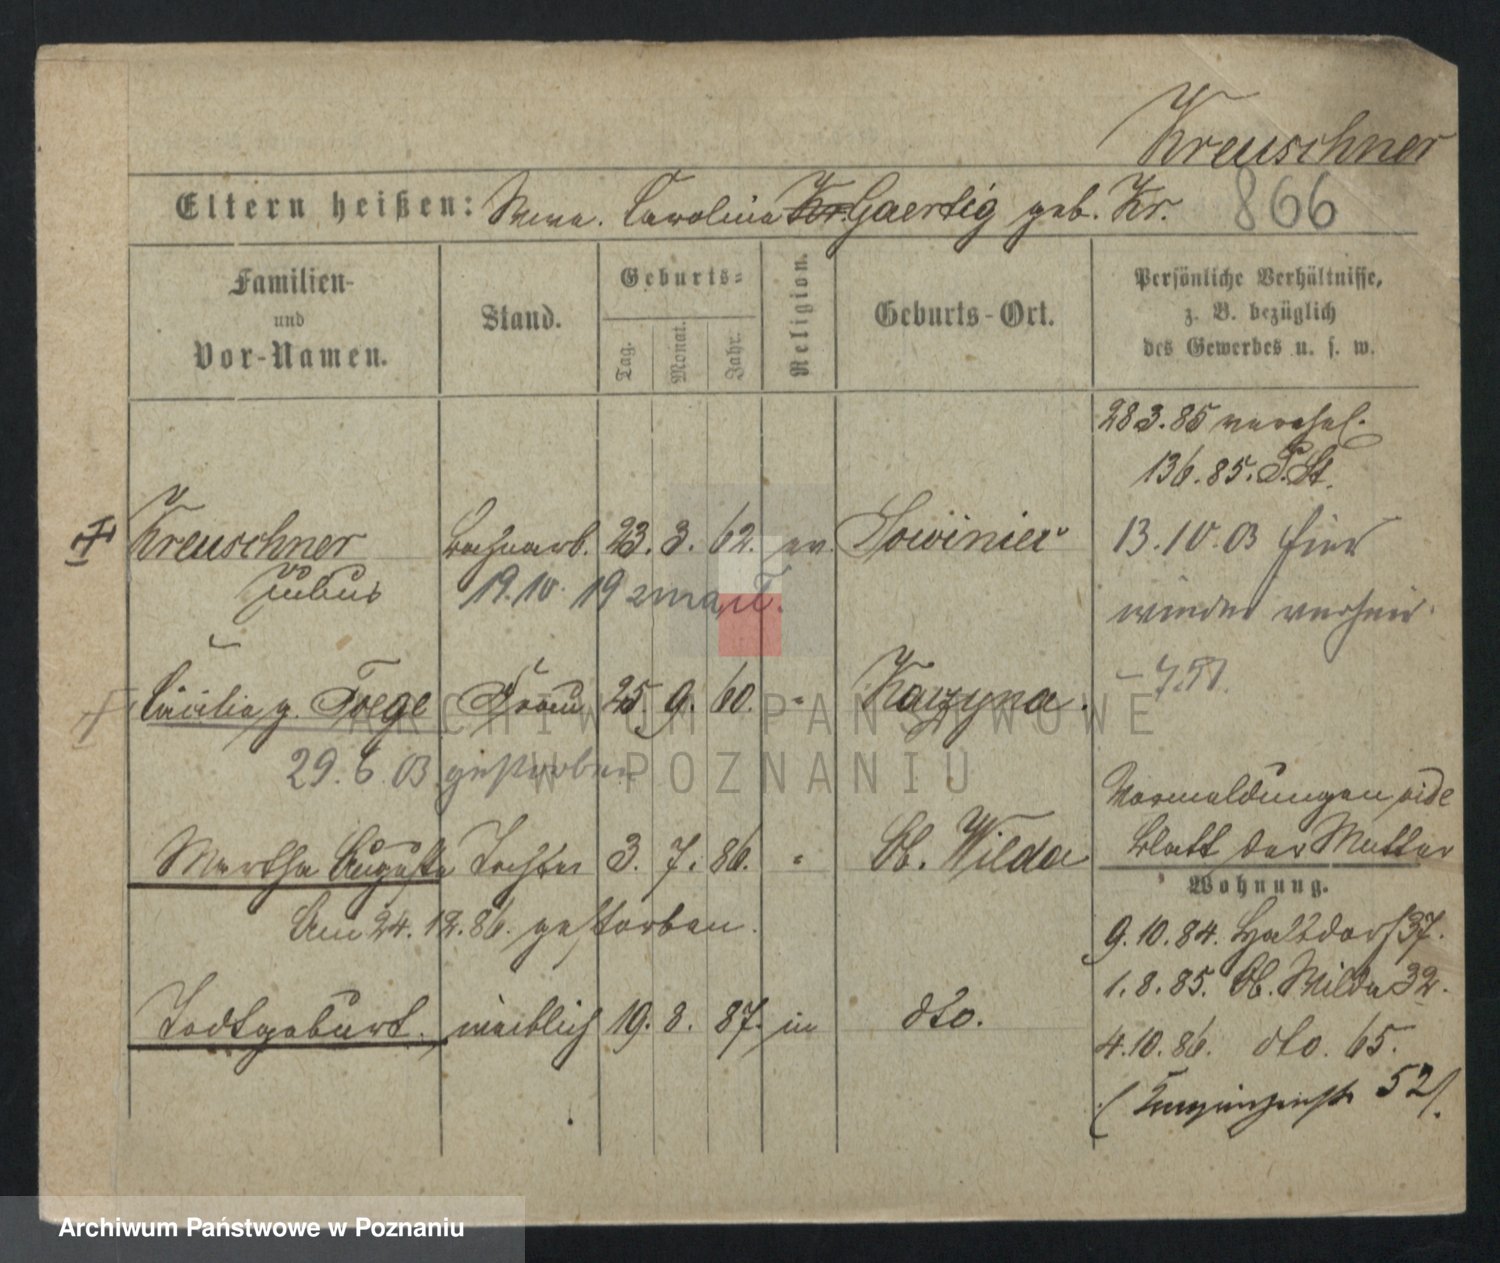 Kreuschner
866
Eltern heißen: Wwe. Carolina Kr. Gaertig geb. Kr.
Familien- und Vor-Namen.
Stand.
Geburts-
Tag. Monat. Jahr.
Religion.
Geburts-Ort.
Persönliche Verhältnisse, z. B. bezüglich des Gewerbes u. s. w.
28 3. 85 verehel.
13 6. 85. P. St.
Kreuschner Julius
23. 3. 62. ev. Sowiniec
19. 10. 19 zmarł.
13. 10. 03 hier
wieder verheir.
Cäcilia g. Foege Frau 25. 9. 60. " Kazyna.
29. 6. 03 gestorben
Vormeldungen vide
Blatt der Mutter
Martha Auguste Tochter 3. 7. 86. " Ob. Wilda
Am 24. 12. 86. gestorben.
Wohnung.
9. 10. 84. Halbdorf 37.
1. 8. 85. Ob. Wilda 32.
Todtgeburt. weiblich 19. 8. 87. in dto.
4. 10. 86. dto. 65.
52
ARCHIWUM PAŃSTWOWE
W POZNANIU
Archiwum Państwowe w Poznaniu